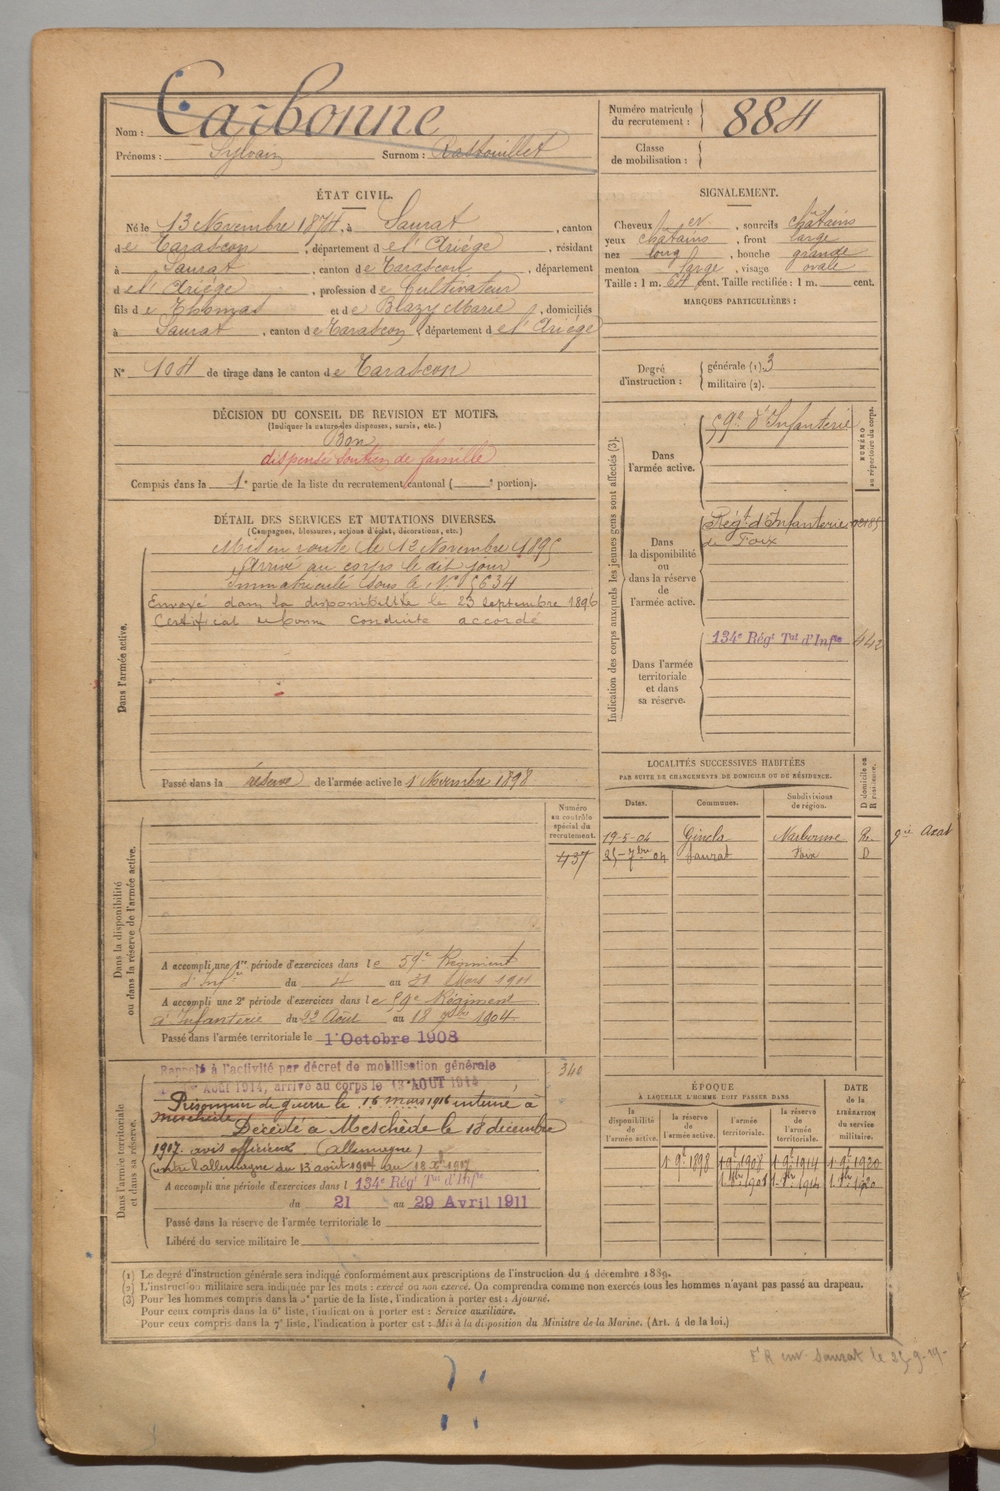 Nom : Carbonne
Prénoms : Sylvain Surnom :
Numéro matricule du recrutement : 884
Classe de mobilisation :
ÉTAT CIVIL.
Né le 13 Novembre 1874, à Saurat, canton
de Tarascon, département de l'Ariège, résidant
à Saurat, canton de Tarascon, département
de l'Ariège, profession de Cultivateur
fils de Thomas et de Blazy Marie, domiciliés
à Saurat, canton de Tarascon, département de l'Ariège
N° 104 de tirage dans le canton de Tarascon
DÉCISION DU CONSEIL DE REVISION ET MOTIFS.
(Indiquer la nature des dispenses, sursis, etc.)
Bon
dispensé soutien de famille
Compris dans la 1e partie de la liste du recrutement cantonal ( e portion).
DÉTAIL DES SERVICES ET MUTATIONS DIVERSES.
(Campagnes, blessures, actions d'éclat, décorations, etc.)
Dans l'armée active.
Mis en route le 12 Novembre 1895
Arrivé au corps le dit jour
Immatriculé sous le N° 5634
Envoyé dans la disponibilité le 23 septembre 1896
Certificat de bonne conduite accordé
Passé dans la réserve de l'armée active le 1 Novembre 1898
Dans la disponibilité
ou dans la réserve de l'armée active.
Numéro
au contrôle
spécial du
recrutement.
437
A accompli une 1re période d'exercices dans le 59e Régiment
d'Infie du 4 au 31 Mars 1901
A accompli une 2e période d'exercices dans le 59e Régiment
d'Infanterie du 22 Août au 18 7bre 1904
Passé dans l'armée territoriale le 1 Octobre 1908
Dans l'armée territoriale
et dans sa réserve.
340
Rappelé à l'activité par décret de mobilisation générale
AOUT 1914, arrivé au corps le 13 AOUT 1914
Prisonnier de guerre le 16 mars 1916 interné à
Meschede Décédé à Meschède le 18 décembre
1917. avis officieux (allemagne)
Contre l'allemagne du 13 août 1914 au 18 Xbre 1917
A accompli une période d'exercices dans l 134e Régt Tal d'Infie
du 21 au 29 Avril 1911
Passé dans la réserve de l'armée territoriale le
Libéré du service militaire le
SIGNALEMENT.
Cheveux et, sourcils châtains
yeux châtains, front large
nez long, bouche grande
menton large, visage ovale
Taille : 1 m. 64 cent. Taille rectifiée : 1 m. cent.
MARQUES PARTICULIÈRES :
Degré d'instruction : générale (1). 3
militaire (2).
Indication des corps auxquels les jeunes gens sont affectés (3).
NUMÉRO
au répertoire du corps.
Dans
l'armée active.
59e d'Infanterie
Dans
la disponibilité
ou
dans la réserve
de
l'armée active.
Régt d'Infanterie
de Foix
Dans l'armée
territoriale
et dans
sa réserve.
134e Régt Tal d'Infie 442
LOCALITÉS SUCCESSIVES HABITÉES
PAR SUITE DE CHANGEMENTS DE DOMICILE OU DE RÉSIDENCE.
Dates. Communes. Subdivisions de région. D domicile ou R résidence.
19-5-04 Gincla Narbonne R. gie Axat
25-7bre 04 Saurat Foix D
ÉPOQUE
À LAQUELLE L'HOMME DOIT PASSER DANS
DATE
de la
LIBÉRATION
du
service
militaire.
la
disponibilité
de
l'armée active.
la réserve
de
l'armée active.
l'armée
territoriale.
la réserve
de
l'armée
territoriale.
1 9e 1898 1 9e 1908 1 9e 1914 1 9e 1920
(1) Le degré d'instruction générale sera indiqué conformément aux prescriptions de l'instruction du 4 décembre 1889.
(2) L'instruction militaire sera indiquée par les mots : exercé ou non exercé. On comprendra comme non exercés tous les hommes n'ayant pas passé au drapeau.
(3) Pour les hommes compris dans la 5e partie de la liste, l'indication à porter est : Ajourné.
Pour ceux compris dans la 6e liste, l'indication à porter est : Service auxiliaire.
Pour ceux compris dans la 7e liste, l'indication à porter est : Mis à la disposition du Ministre de la Marine. (Art. 4 de la loi.)
Saurat le 25-9-19-